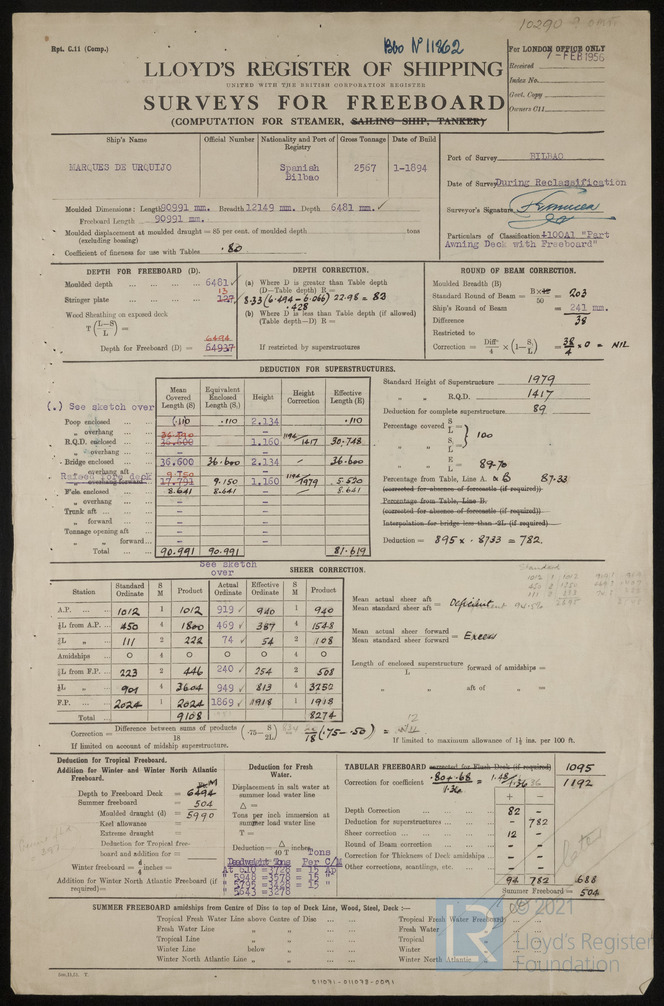 10290
Rpt. C.11 (Comp.)
Bbo Nº 11862
For LONDON OFFICE ONLY
7 - FEB 1956
Received
Index No.
Govt. Copy
Owners C11
LLOYD'S REGISTER OF SHIPPING
UNITED WITH THE BRITISH CORPORATION REGISTER
SURVEYS FOR FREEBOARD
(COMPUTATION FOR STEAMER, SAILING SHIP, TANKER)
Ship's Name Official Number Nationality and Port of Registry Gross Tonnage Date of Build
MARQUES DE URQUIJO Spanish Bilbao 2567 1-1894
Port of Survey BILBAO
Date of Survey During Reclassification
Surveyor's Signature
Particulars of Classification +100A1 "Part
Awning Deck with Freeboard"
Moulded Dimensions: Length 90991 mm. Breadth 12149 mm. Depth 6481 mm.
Freeboard Length 90991 mm.
Moulded displacement at moulded draught = 85 per cent. of moulded depth tons
(excluding bossing)
Coefficient of fineness for use with Tables .80
DEPTH FOR FREEBOARD (D).
Moulded depth 6481
Stringer plate 13
Wood Sheathing on exposed deck
T (L-S/L) =
6494
Depth for Freeboard (D) = 64937
DEPTH CORRECTION.
(a) Where D is greater than Table depth
(D—Table depth) R =
8.33 (6.494 - 6.066) 22.98 = 82
.428
(b) Where D is less than Table depth (if allowed)
(Table depth—D) R =
If restricted by superstructures
ROUND OF BEAM CORRECTION.
Moulded Breadth (B)
Standard Round of Beam = B×12/50 = 203
Ship's Round of Beam = 241 mm.
Difference 38
Restricted to
Correction = Diffce/4 × (1 - S/L) = 38/4 × 0 = NIL
DEDUCTION FOR SUPERSTRUCTURES.
(.) See sketch over
Mean Covered Length (S) Equivalent Enclosed Length (S₁) Height Height Correction Effective Length (E)
Poop enclosed .110 .110 2.134 .110
" overhang
R.Q.D. enclosed 1.160 /1417 30.748
" overhang
Bridge enclosed 36.600 36.600 2.134 - 36.600
" overhang aft 9.150
Raised fore deck
" overhang forward 17.791 9.150 1.160 /1979 5.520
F'cle enclosed 8.641 8.641 - 8.641
" overhang
Trunk aft
" forward
Tonnage opening aft
" " forward
Total 90.991 90.991 81.619
Standard Height of Superstructure 1979
" " R.Q.D. 1417
Deduction for complete superstructure 89
Percentage covered S/L
" " S₁/L } 100
" " E/L = 89.70
Percentage from Table, Line A. & B 87.33
(corrected for absence of forecastle (if required))
Percentage from Table, Line B.
(corrected for absence of forecastle (if required))
Interpolation for bridge less than .2L (if required)
Deduction = 895 × .8733 = 782.
see sketch
over
SHEER CORRECTION.
Station Standard Ordinate S M Product Actual Ordinate Effective Ordinate S M Product
A.P. 1012 1 1012 919 940 1 940
⅙L from A.P. 450 4 1800 469 387 4 1548
⅓L " 111 2 222 74 54 2 108
Amidships 0 4 0 0 0 4 0
⅓L from F.P. 223 2 446 240 254 2 508
⅙L " 901 4 3604 949 813 4 3252
F.P. 2024 1 2024 1869 1918 1 1918
Total 9108 8274
Mean actual sheer aft
Mean standard sheer aft = Deficient
Mean actual sheer forward
Mean standard sheer forward = Excess
Length of enclosed superstructure/L forward of amidships =
" " aft of " =
Correction = Difference between sums of products/18 (.75 - S/2L) = /18 (.75 - .50) = 12
If limited on account of midship superstructure.
If limited to maximum allowance of 1½ ins. per 100 ft.
Deduction for Tropical Freeboard.
Addition for Winter and Winter North Atlantic Freeboard.
Depth to Freeboard Deck = 6494
Summer freeboard = 504
Moulded draught (d) = 5990
Keel allowance =
Extreme draught =
Deduction for Tropical freeboard and addition for
Winter freeboard = d/4 inches =
Addition for Winter North Atlantic Freeboard (if required) =
Deduction for Fresh Water.
Displacement in salt water at summer load water line
△ =
Tons per inch immersion at summer load water line
T =
Deduction = △/40 T inches
Deadweight Tons Tons Per C/M
At 6.10 =3728 = 15 Ap
" 5948 =3578 = 15 "
" 5795 =3428 = 15 "
" 5643 =3278
TABULAR FREEBOARD corrected for Flush Deck (if required) 1095
Correction for coefficient .80+.68/1.36 = 1.48/1.36 1192
+ -
Depth Correction 82 -
Deduction for superstructures - 782
Sheer correction 12 -
Round of Beam correction - -
Correction for Thickness of Deck amidships - -
Other corrections, scantlings, etc. - -
94 782 688
Summer Freeboard = 504
SUMMER FREEBOARD amidships from Centre of Disc to top of Deck Line, Wood, Steel, Deck :—
Tropical Fresh Water Line above Centre of Disc
Fresh Water Line " "
Tropical Line " "
Winter Line below "
Winter North Atlantic Line " "
Tropical Fresh Water Freeboard
Fresh Water "
Tropical "
Winter "
Winter North Atlantic "
© 2021
LR
Lloyd's Register
Foundation
011071-011078-0091